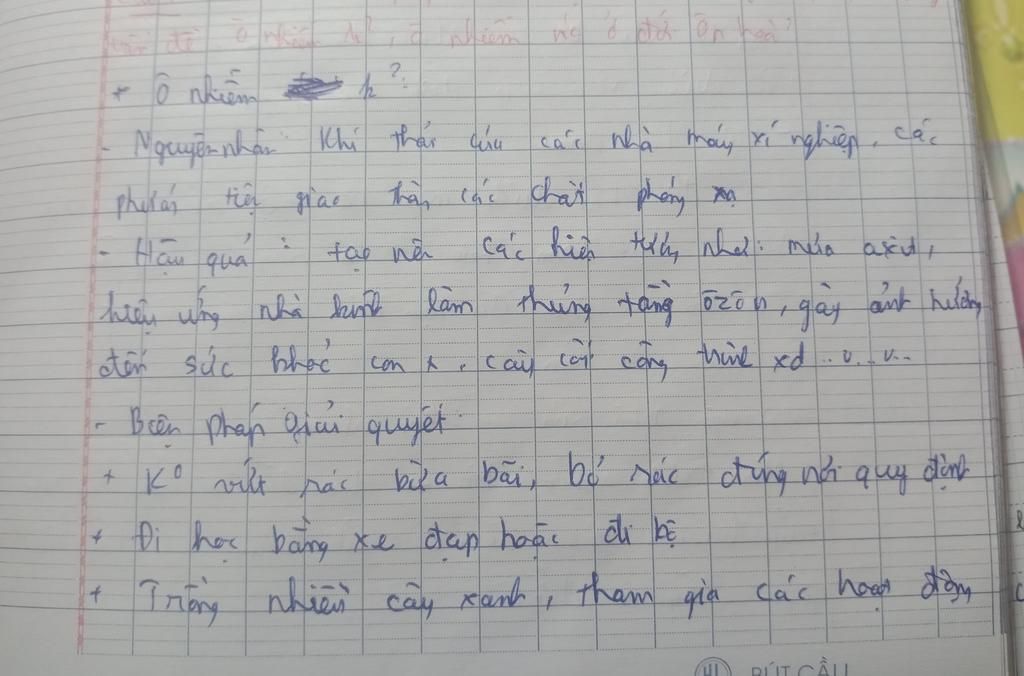 vấn đề ô nhiễm k², ô nhiễm nc ở đới ôn hoà?
+ Ô nhiễm k?
- Nguyên nhân: Khí thải của các nhà máy xí nghiệp, các
tiện giao thôn, các chất phóng xạ
- Hậu quả: tạo nên các hiện tượng như: mưa axit,
hiệu ứng nhà kính làm thủng tầng ôzôn, gây ảnh hưởng
đến sức khoẻ con x, cây cối công trình xd v.v..
- Biện pháp giải quyết
+ K⁰ vứt rác bừa bãi, bỏ rác đúng nơi quy định
+ Đi học bằng xe đạp hoặc đi bộ
+ Trồng nhiều cây xanh, tham gia các hoạt động
41 BÚT CẦU